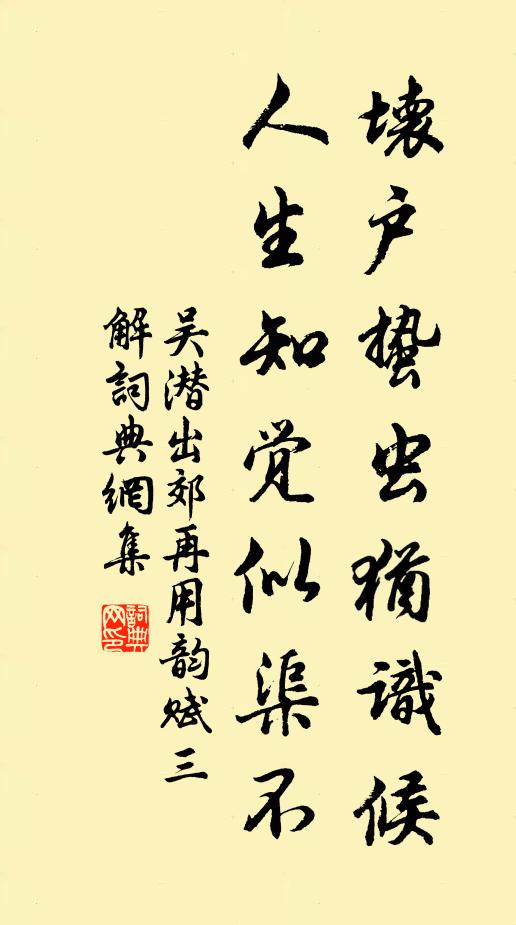 壞户蟄虫猶識候
人生知覺似渠不
吴潜出郊再用韵赋三
解詞典網集
詞典网印